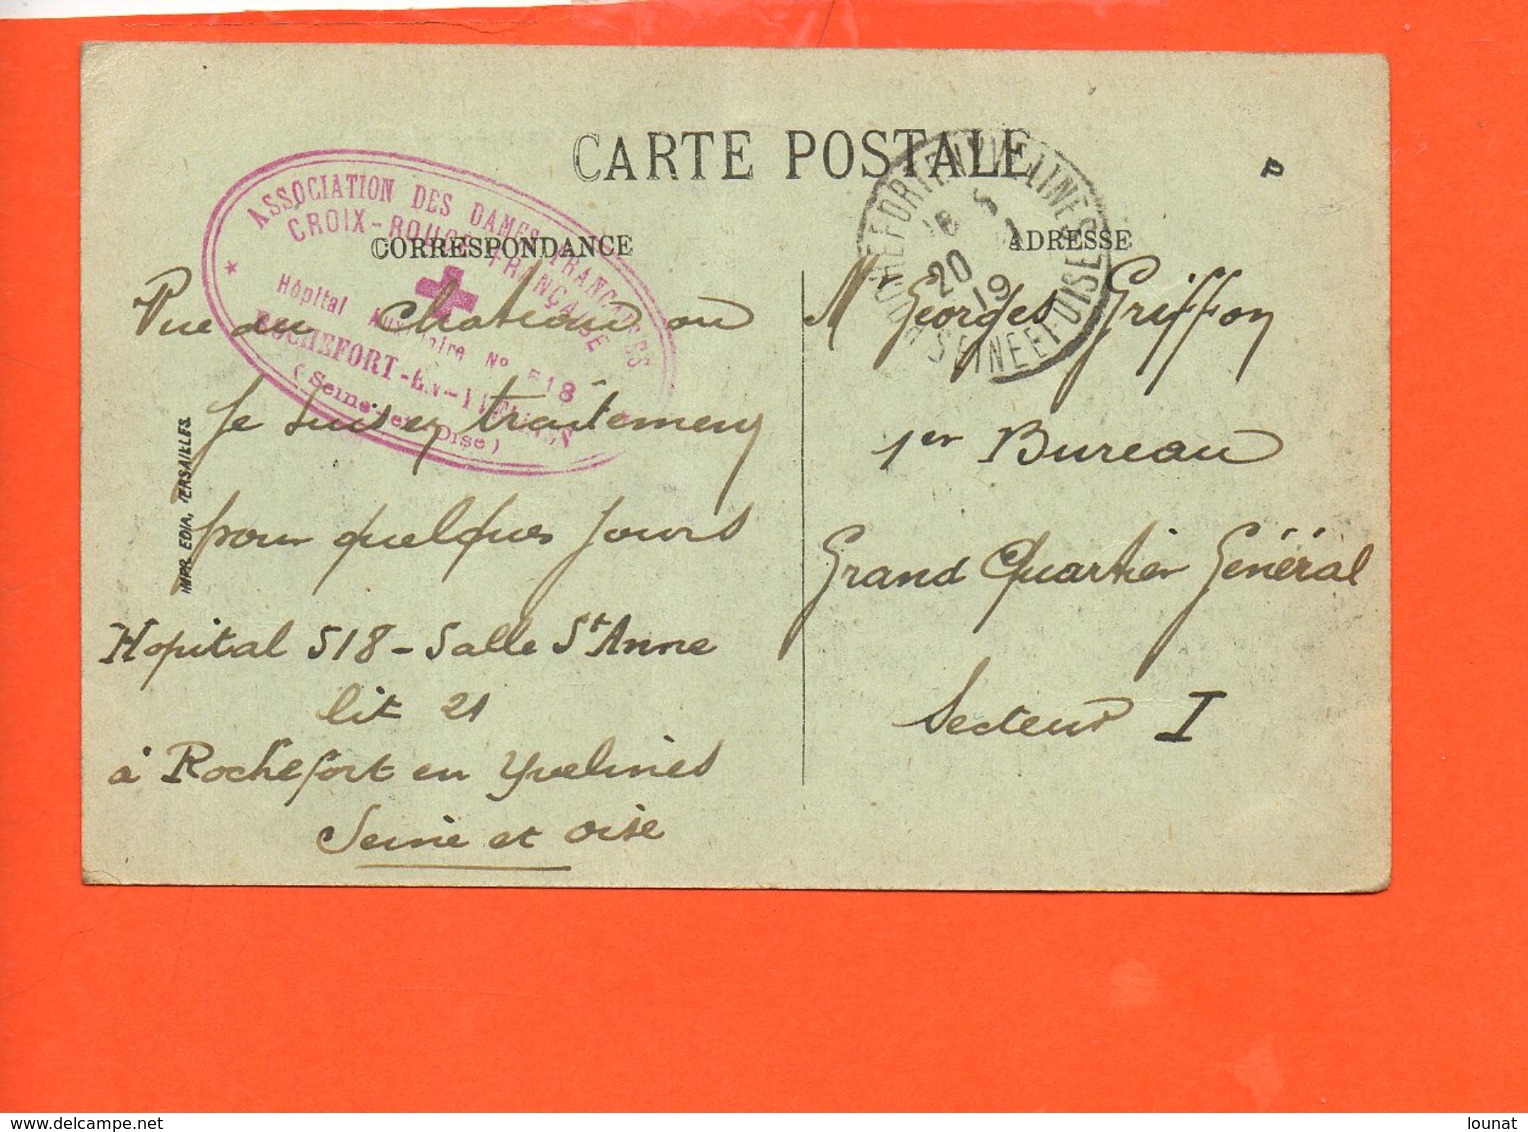 CARTE POSTALE
CORRESPONDANCE
ADRESSE
P
ASSOCIATION DES DAMES FRANÇAISES
CROIX-ROUGE FRANÇAISE
Hôpital Auxiliaire N° 518
ROCHEFORT-EN-YVELINES
(Seine-et-Oise)
ROCHEFORT EN YVELINES
20
19
SEINE ET OISE
Vue du Chateau ou
je suis en traitement
pour quelques jours
Hopital 518 - Salle St Anne
lit 21
à Rochefort en Yvelines
Seine et Oise
M Georges Griffon
1er Bureau
Grand Quartier Général
Secteur I
IMPR. EDIA, VERSAILLES.
delcampe.net
lounat